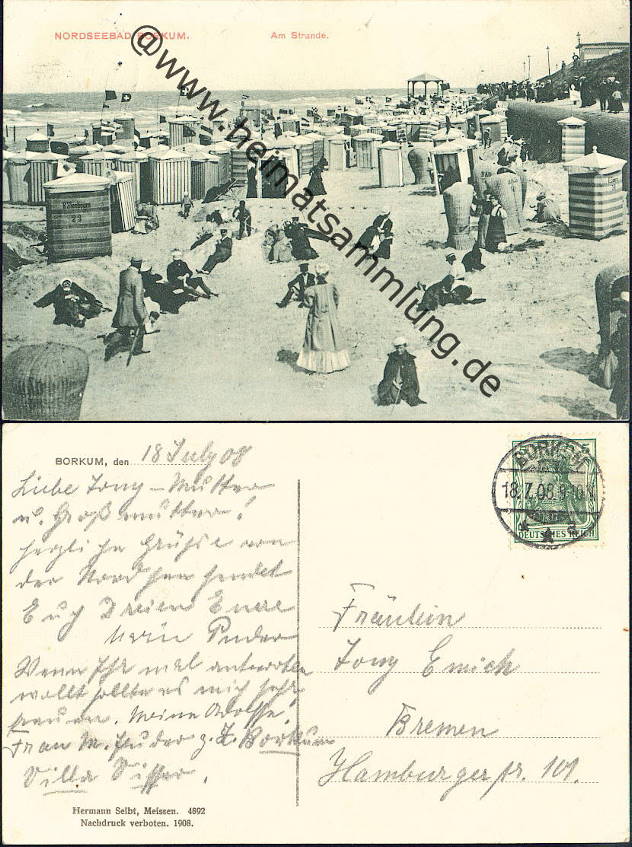 NORDSEEBAD BORKUM.
Am Strande.
@www.heimatsammlung.de
23
BORKUM, den 18 July 08
Liebe Tony – Mutter
u. Großmutter!
herzliche Grüße von
der Nordsee sendet
Euch Dreien Eure
Wenn Ihr mal antworten
wollt sollte es mich sehr
freuen. Meine Adresse:
Frau M. z. Z. Borkum
Villa
BORKUM
18.7.08.9-10N
DEUTSCHES REICH
Fräulein
Tony Emich
Bremen
Hamburgerstr. 101.
Hermann Seibt, Meissen. 4892
Nachdruck verboten. 1908.